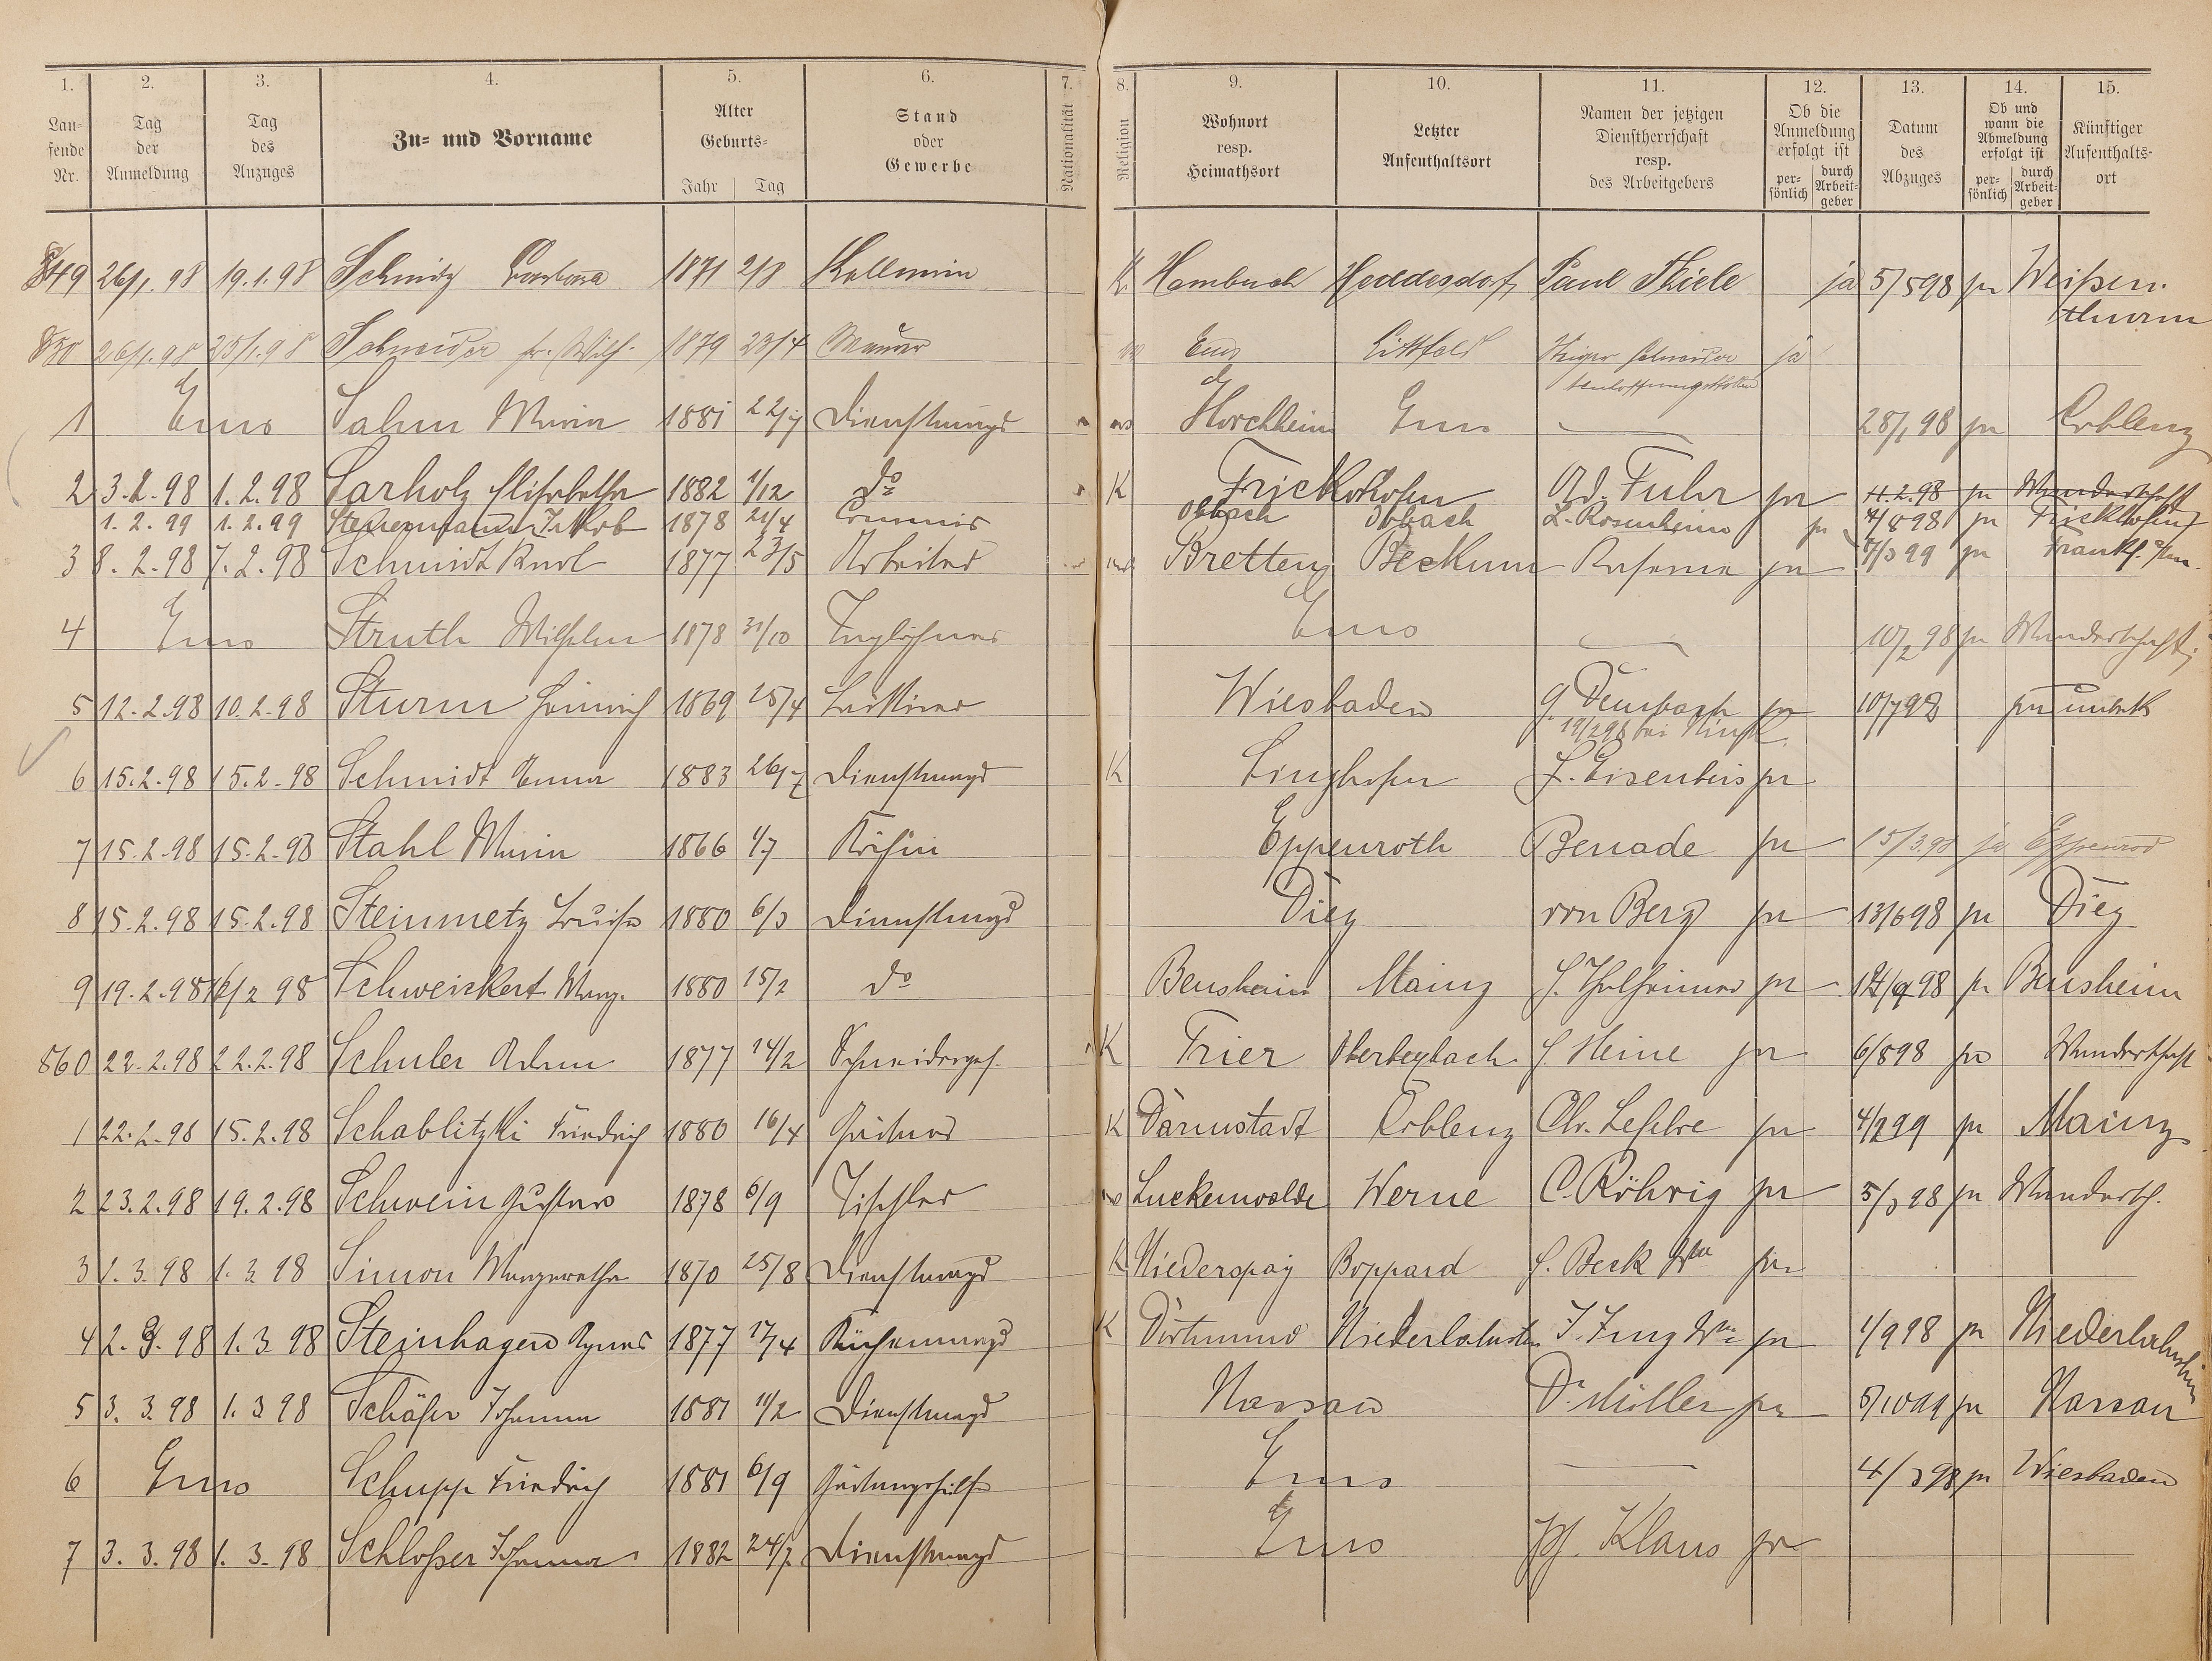 1. 2. 3. 4. 5. 6. 7. 8. 9. 10. 11. 12. 13. 14. 15.
Lau-
fende
Nr.
Tag
der
Anmeldung
Tag
des
Anzuges
Zu- und Vorname
Alter
Geburts-
Jahr Tag
Stand
oder
Gewerbe
Nationalität
Religion
Wohnort
resp.
Heimathsort
Letzter
Aufenthaltsort
Namen der jetzigen
Dienstherrschaft
resp.
des Arbeitgebers
Ob die
Anmeldung
erfolgt ist
per-
sönlich
durch
Arbeit-
geber
Datum
des
Abzuges
Ob und
wann die
Abmeldung
erfolgt ist
per-
sönlich
durch
Arbeit-
geber
Künftiger
Aufenthalts-
ort
849 26/1. 98 19.1.98 Schmitz Barbara 1871 2/8 Kellnerin K. Hambuch Heddesdorf Paul Thiele ja 5/5 98 ja Weißen.
thurm
850 26/1.98 25/1.98 Schneider Wilh. 1879 23/4 Maurer Ems Littfeld Schneider ja
1 Ems Sahm Maria 1881 22/7 Dienstmagd Horchheim Ems 28/1 98 ja Coblenz
2 3.2.98 1.2.98 Sarholz Elisabetha 1882 1/12 do K Frickhofen Ad. Fuhr ja 11.2.98 ja Wanderschaft
1.2.99 1.2.99 Jakob 1878 21/4 Commis Obbach Obbach L. Rosenheim ja 4/8 98 ja Frickhofen
3 8.2.98 7.2.98 Schmidt Karl 1877 23/5 Arbeiter Bretten Beckum ja 7/3 99 ja Frankf. a/m.
4 Ems Struth Wilhelm 1878 31/10 Taglöhner Ems 10/2 98 ja Wanderschaft
5 12.2.98 10.2.98 Sturm Heinrich 1869 25/4 Lackirer Wiesbaden G. Dembach ja 10/7 98 ja unbek
19/2 98 bei
6 15.2.98 15.2.98 Schmidt Emma 1883 26/7 Dienstmagd K Singhofen F. Eisenbeis ja
7 15.2.98 15.2.98 Stahl Maria 1866 1/7 Köchin Eppenroth Benade ja 15/3.98 ja Eppenrod
8 15.2.98 15.2.98 Steinmetz Louise 1880 6/3 Dienstmagd Diez von Berg ja 13/6 98 ja Diez
9 19.2.98 16/2 98 Schweickert Marg. 1880 15/2 do Bensheim Mainz J. Thalheimer ja 14/9 98 ja Bensheim
860 22.2.98 22.2.98 Schuler Adam 1877 14/2 Schneiderges. K Trier J. Heine ja 6/8 98 ja Wanderschaft
1 22.2.98 15.2.98 Schablitzki Friedrich 1880 16/4 Gärtner K Darmstadt Coblenz Chr. Lefebre ja 4/2 99 ja Mainz
2 23.2.98 19.2.98 Schwein Gustav 1878 6/9 Tischler Luckenwalde Werne C. Röhrig ja 5/3 98 ja Wandersch.
3 1.3.98 1.3.98 Simon Margaretha 1870 25/8 Dienstmagd K Niederspay Boppard J. Beck Wwe ja
4 2.3.98 1.3.98 Steinhagen Agnes 1877 17/4 Küchenmagd K Dortmund Niederlahnstein J. Jung Wwe ja 1/9 98 ja Niederlahnstein
5 3.3.98 1.3.98 Schäfer Johanna 1881 11/2 Dienstmagd Nassau Dr. Müller ja 5/10 99 ja Nassau
6 Ems Schupp Friedrich 1881 6/9 Gärtnergehilfe Ems 4/3 98 ja Wiesbaden
7 3.3.98 1.3.98 Schloßer Johanna 1882 24/7 Dienstmagd Ems Ph. Klaus ja